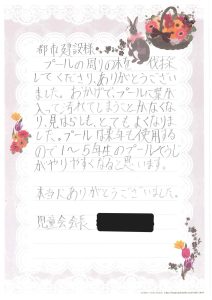 都市建設様
プールの周りの木を伐採
してくださり、ありがとうござい
ました。おかげで、プールに葉が
入って汚れてしまうことがなくな
り、見はらしも、とてもよくなりま
した。プールは来年も使用する
ので1〜5年生のプールそうじ
がやりやすくなると思います。
本当にありがとうございました。
児童会会長